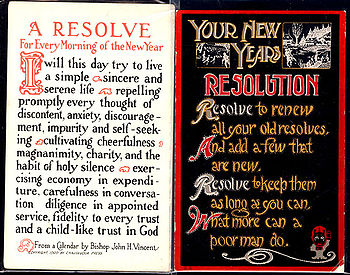 A RESOLVE
For Every Morning of the New Year
I will this day try to live
a simple sincere and
serene life repelling
promptly every thought of
discontent, anxiety, discourage-
ment, impurity and self-seek-
ing cultivating cheerfulness
magnanimity, charity, and the
habit of holy silence exer-
cising economy in expendi-
ture, carefulness in conversa-
tion diligence in appointed
service, fidelity to every trust
and a child-like trust in God
From a Calendar by Bishop John H. Vincent
YOUR NEW
YEARS
RESOLUTION
Resolve to renew
all your old resolves,
And add a few that
are new.
Resolve to keep them
as long as you can,
What more can a
poor man do.